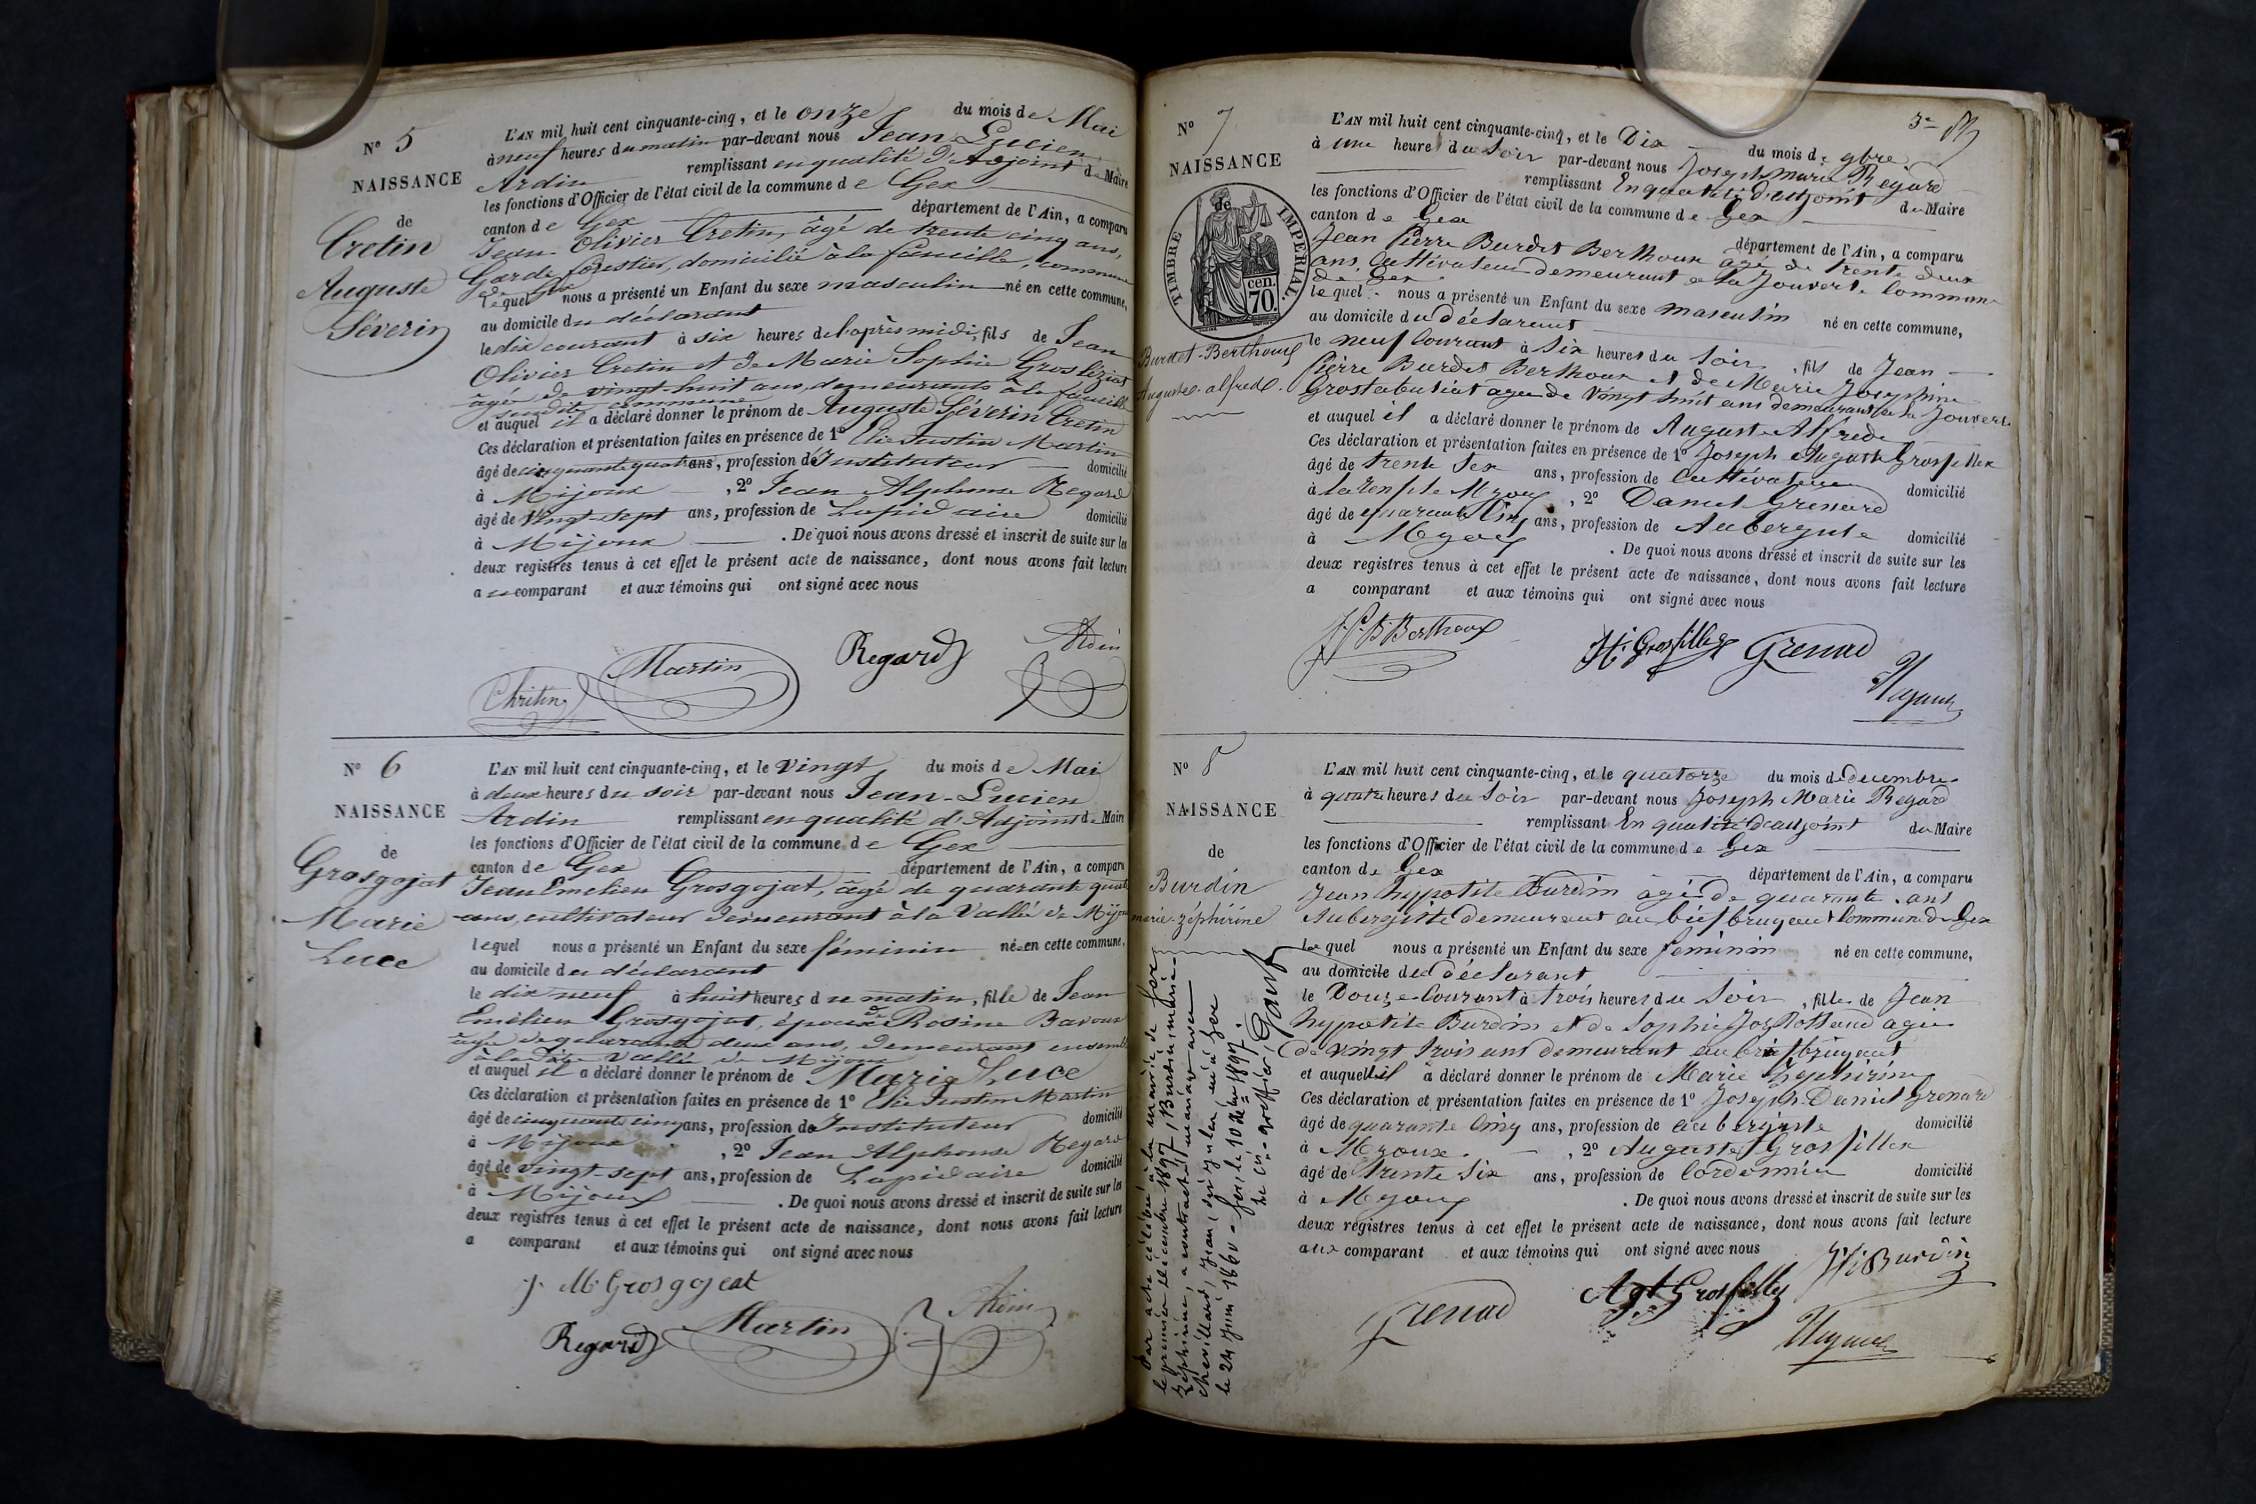 N° 5
NAISSANCE
de
Cretin
Auguste
Séverin
L'AN mil huit cent cinquante-cinq, et le onze du mois de Mai
à neuf heures du matin par-devant nous Jean Lucien
Ardin remplissant en qualité d'Adjoint de Maire
les fonctions d'Officier de l'état civil de la commune de Gex
canton de Gex département de l'Ain, a comparu
Jean Olivier Cretin, âgé de trente cinq ans,
Garde forestier, domicilié à la faucille, commune
de Gex
lequel nous a présenté un Enfant du sexe masculin né en cette commune,
au domicile du déclarant
le dix courant à six heures de l'après midi, fils de Jean
Olivier Cretin et de Marie Sophie
âgée de vingt huit ans, demeurants à la faucille
susdite commune
et auquel il a déclaré donner le prénom de Auguste Séverin Cretin
Ces déclaration et présentation faites en présence de 1° Elie Justin Martin
âgé de cinquante quatre ans, profession d'Instituteur domicilié
à Mijoux, 2° Jean Alphonse Regard
âgé de vingt-sept ans, profession de Lapidaire domicilié
à Mijoux. De quoi nous avons dressé et inscrit de suite sur les
deux registres tenus à cet effet le présent acte de naissance, dont nous avons fait lecture
au comparant et aux témoins qui ont signé avec nous
Chritin Martin Regard Ardin
N° 6
NAISSANCE
de
Grosgojat
Marie
Luce
L'AN mil huit cent cinquante-cinq, et le vingt du mois de Mai
à deux heures du soir par-devant nous Jean-Lucien
Ardin remplissant en qualité d'Adjoint de Maire
les fonctions d'Officier de l'état civil de la commune de Gex
canton de Gex département de l'Ain, a comparu
Jean Emelien Grosgojat, âgé de quarante quatre
ans, cultivateur demeurant à la Vallée de Mijoux
lequel nous a présenté un Enfant du sexe féminin née en cette commune,
au domicile du déclarant
le dix neuf à huit heures du matin, fille de Jean
Emélien Grosgojat, époux de Rosine Bavoux
âgée de quarante deux ans, demeurant ensemble
à la dite Vallée de Mijoux
et auquel il a déclaré donner le prénom de Marie Luce
Ces déclaration et présentation faites en présence de 1° Elie Justin Martin
âgé de cinquante cinq ans, profession de Instituteur domicilié
à Mijoux, 2° Jean Alphonse Regard
âgé de vingt-sept ans, profession de Lapidaire domicilié
à Mijoux. De quoi nous avons dressé et inscrit de suite sur les
deux registres tenus à cet effet le présent acte de naissance, dont nous avons fait lecture
a comparant et aux témoins qui ont signé avec nous
J. M. Grosgojeat
Regard Martin Ardin
3e
N° 7
NAISSANCE
de
TIMBRE IMPERIAL.
cen.
70.
Burdet-Berthoux
Auguste-alfred.
L'AN mil huit cent cinquante-cinq, et le Dix du mois de 9bre
à une heure du Soir par-devant nous Joseph Marie Regard
remplissant En qualité d'adjoint du Maire
les fonctions d'Officier de l'état civil de la commune de Gex
canton de Gex département de l'Ain, a comparu
Jean Pierre Burdet Berthoux âgé de trente deux
ans, Cultivateur demeurant a La Jouvert. Commune
de Gex
lequel nous a présenté un Enfant du sexe masculin né en cette commune,
au domicile du déclarant
le neuf Courant à Six heures du Soir, fils de Jean
Pierre Burdet Berthoux et de Marie Josephine
agée de Vingt huit ans demeurant a la Jouvert
et auquel il a déclaré donner le prénom de Auguste Alfrede
Ces déclaration et présentation faites en présence de 1° Joseph Auguste Grosfillex
âgé de trente Sex ans, profession de Cultivateur domicilié
à, 2° Daniel Grenard
âgé de quarante Cinq ans, profession de Aubergiste domicilié
à. De quoi nous avons dressé et inscrit de suite sur les
deux registres tenus à cet effet le présent acte de naissance, dont nous avons fait lecture
a comparant et aux témoins qui ont signé avec nous
J. P. B Berthoux Grosfillex Grenard
N° 8
NAISSANCE
de
Burdin
marie-zéphirine
L'AN mil huit cent cinquante-cinq, et le quatorze du mois de decembre
à quatre heures du Soir par-devant nous Joseph Marie Regard
remplissant En qualité d'adjoint du Maire
les fonctions d'Officier de l'état civil de la commune de Gex
canton de Gex département de l'Ain, a comparu
Jean hypotite Burdin agé de quarante ans
Aubergiste demeurant au bief bruyant Commune de Gex
lequel nous a présenté un Enfant du sexe feminin né en cette commune,
au domicile du déclarant
le Douze Courant à trois heures du Soir, fille de Jean
hypotite Burdin et de Sophie agée
de vingt trois ans demeurant au bief bruyant
et auquel il a déclaré donner le prénom de Marie Zéphirine
Ces déclaration et présentation faites en présence de 1° Joseph Daniel Grenard
âgé de quarante Cinq ans, profession de aubergiste domicilié
à Mijoux, 2° Auguste Grosfillex
âgé de trente Six ans, profession de Cordonnier domicilié
à. De quoi nous avons dressé et inscrit de suite sur les
deux registres tenus à cet effet le présent acte de naissance, dont nous avons fait lecture
aux comparant et aux témoins qui ont signé avec nous
Grenard Agt Grosfillex Burdin
Par acte célébré à la mairie de Gex
le premier décembre 1897, Burdin marie-
Zéphirine, a contracté mariage avec
Chevillard, Jean, né à Gex
le 24 Juin 1860 - Gex, le 10 Xbre 1897.
greffier